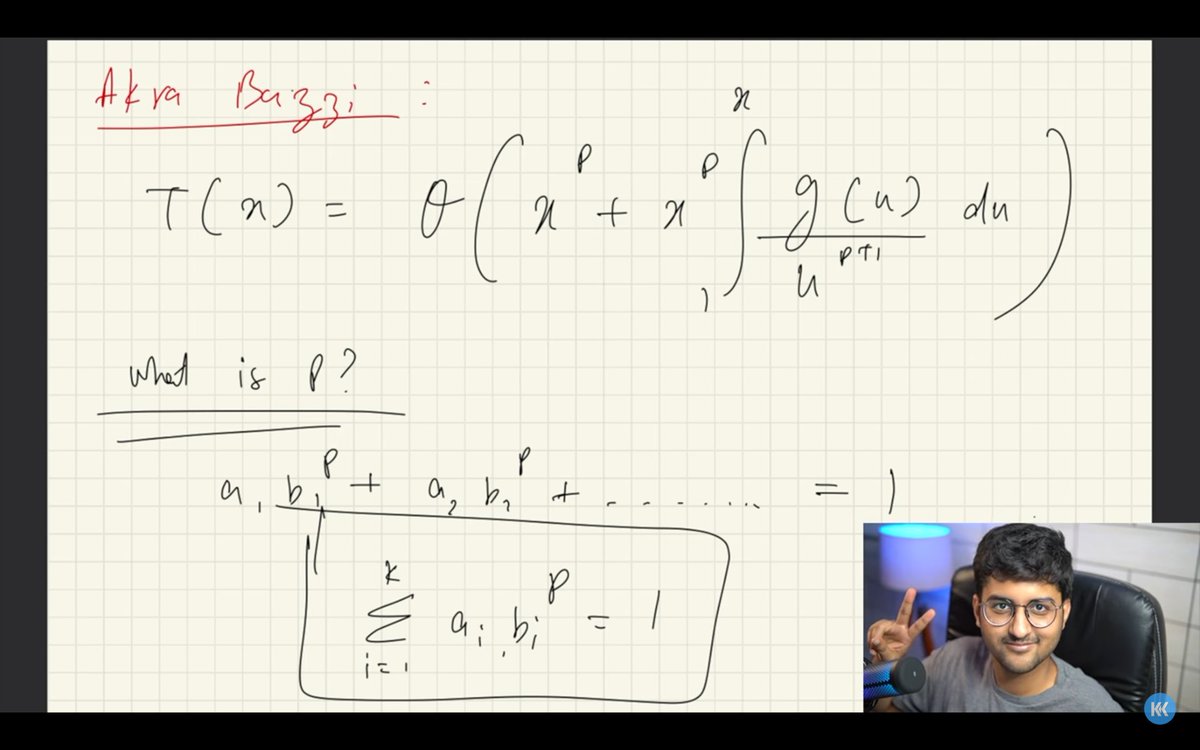 Akra Bazzi :
T(x) = θ(x^p + x^p ∫₁ˣ g(u)/u^(p+1) du)
What is p?
a₁ b₁^p + a₂ b₂^p + ........ = 1
∑_{i=1}^{k} aᵢ bᵢ^p = 1
KK